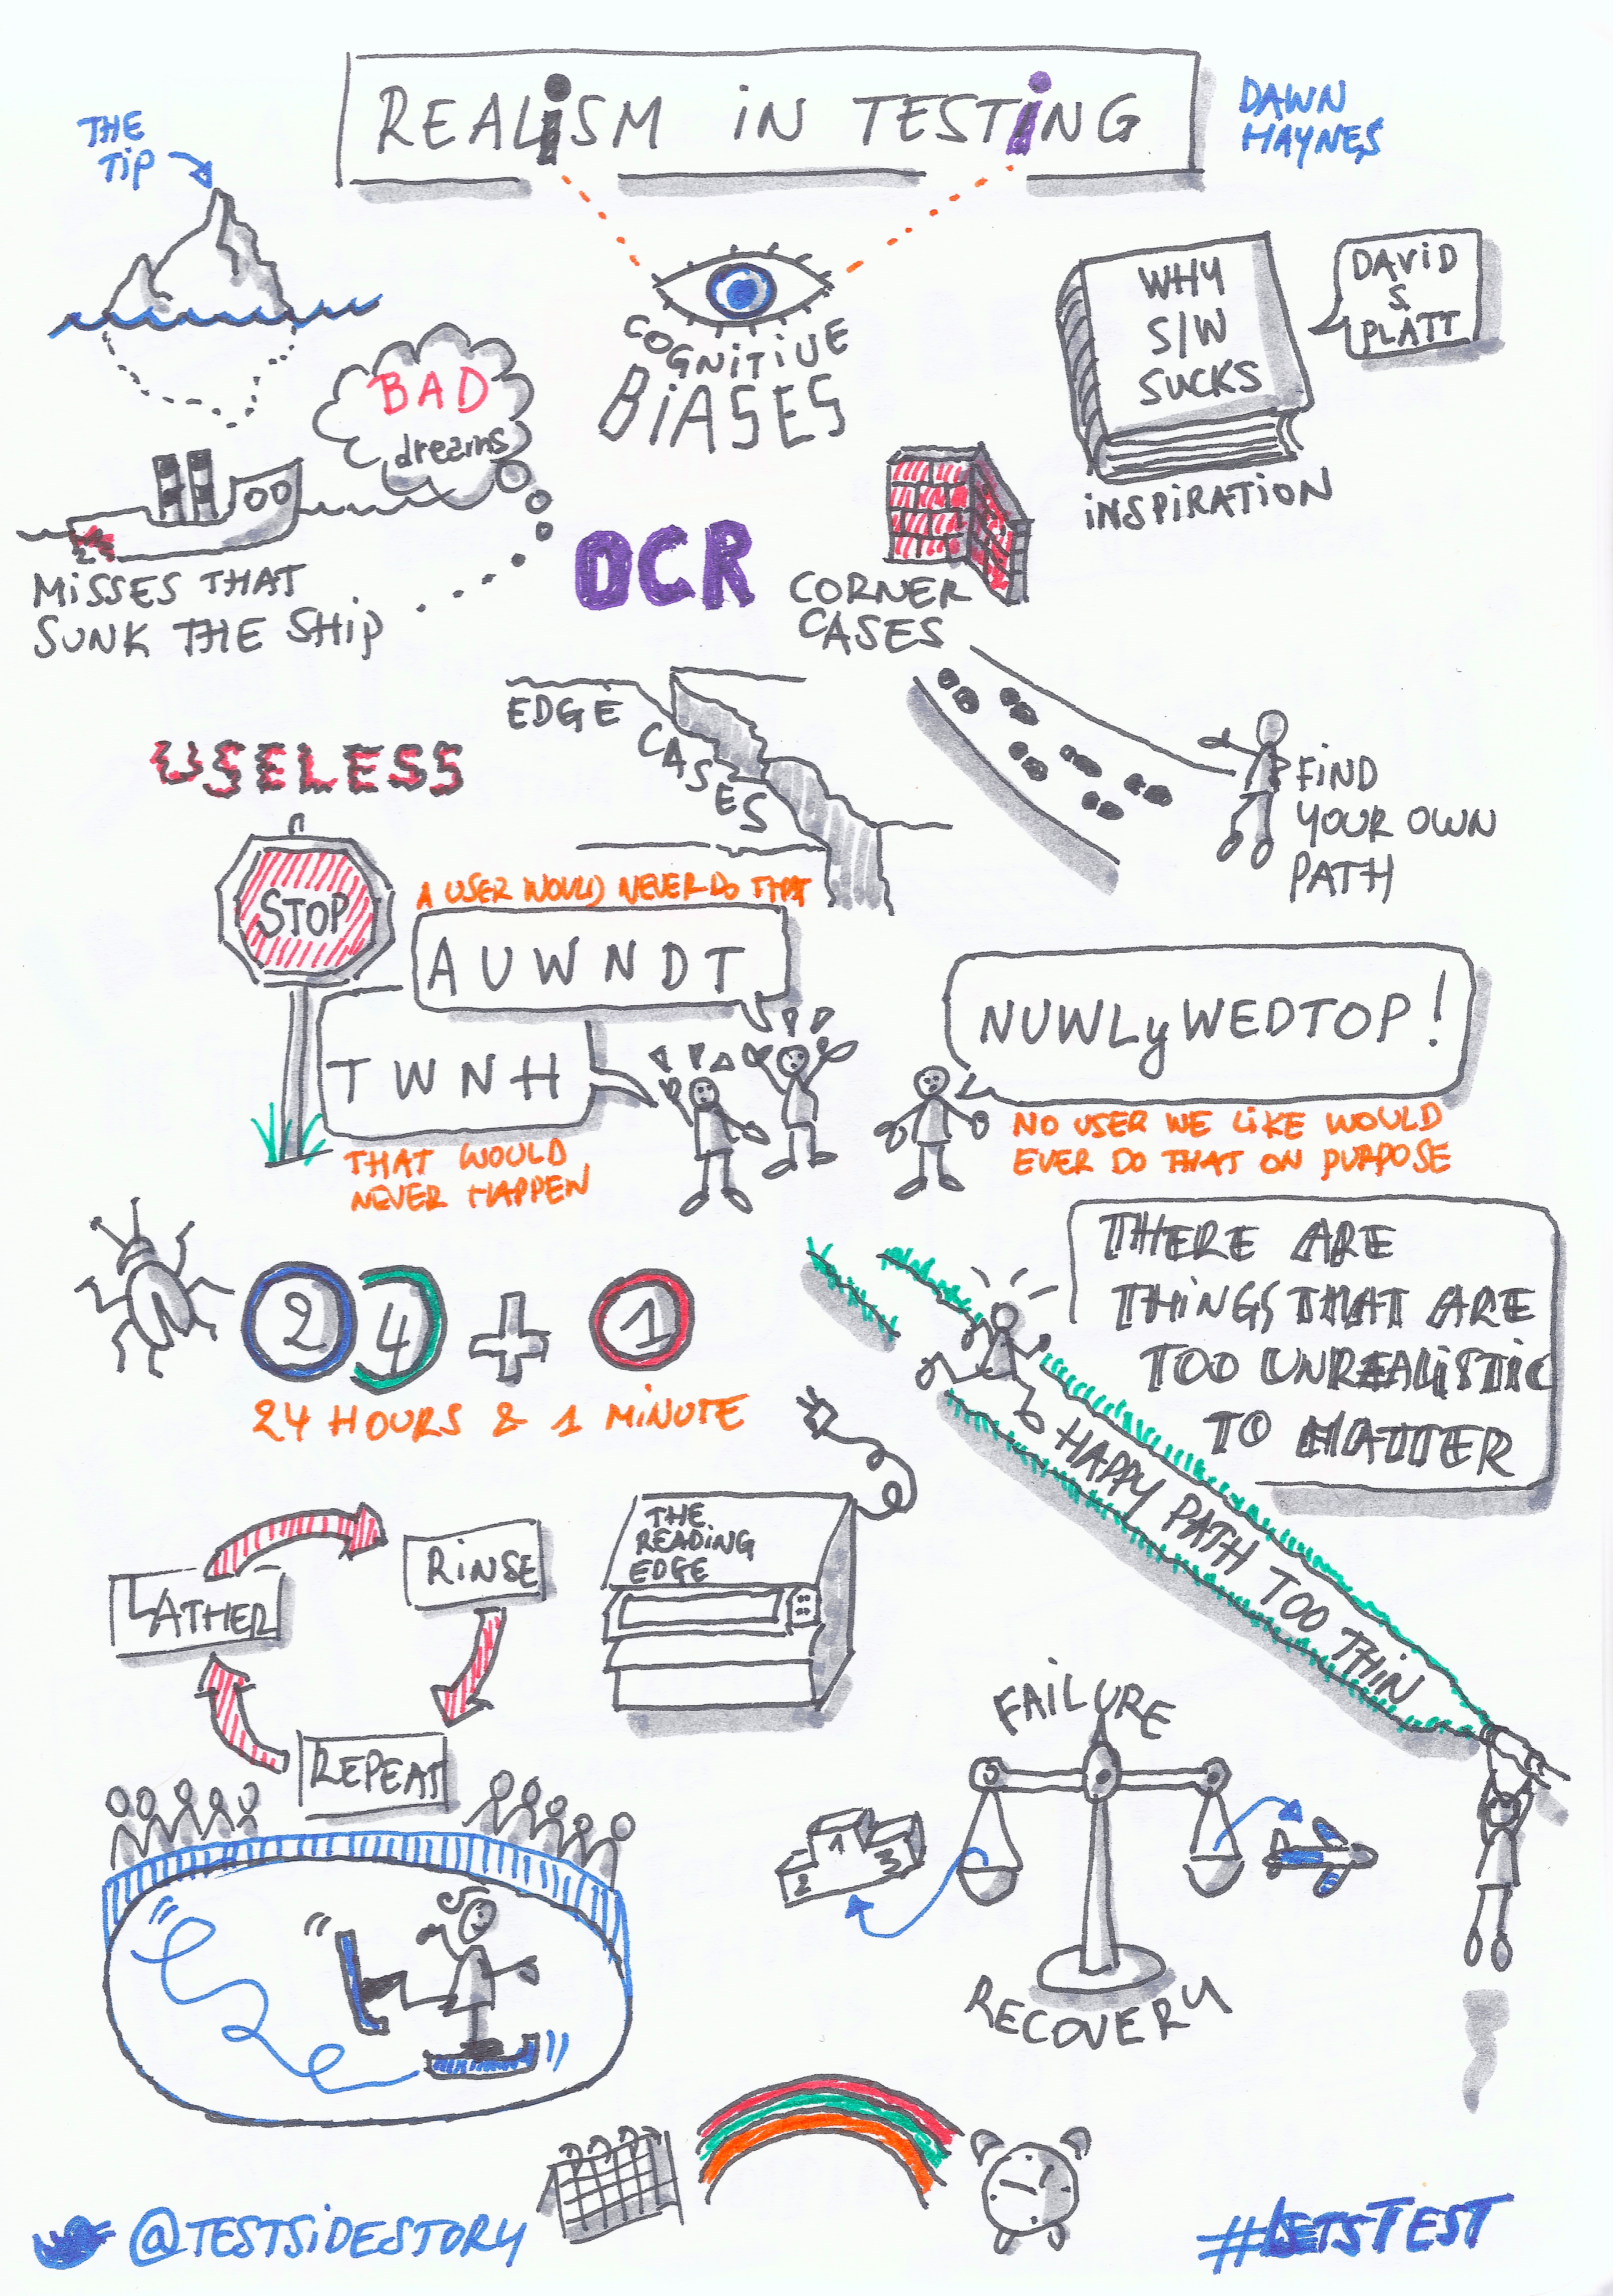 REALiSM iN TESTiNG
DAWN
HAYNES
THE
TiP
COGNiTiVE
BiASES
WHY
S/W
SUCKS
DAViD
S
PLATT
iNSPiRATiON
BAD
dreams
MiSSES THAT
SUNK THE SHiP
OCR
CORNER
CASES
EDGE
CASES
FiND
YOUR OWN
PATH
USELESS
STOP
A USER WOULD NEVER DO THAT
A U W N D T
T W N H
THAT WOULD
NEVER HAPPEN
NUWLyWEDTOP!
NO USER WE LiKE WOULD
EVER DO THAT ON PURPOSE
24 + 1
24 HOURS & 1 MiNUTE
THERE ARE
THiNGS THAT ARE
TOO UNREALiSTiC
TO MATTER
HAPPY PATH TOO THiN
LATHER
RiNSE
REPEAT
THE
READiNG
EDGE
FAiLURE
1
2
3
RECOVERY
@TESTSiDESTORY
#LETSTEST